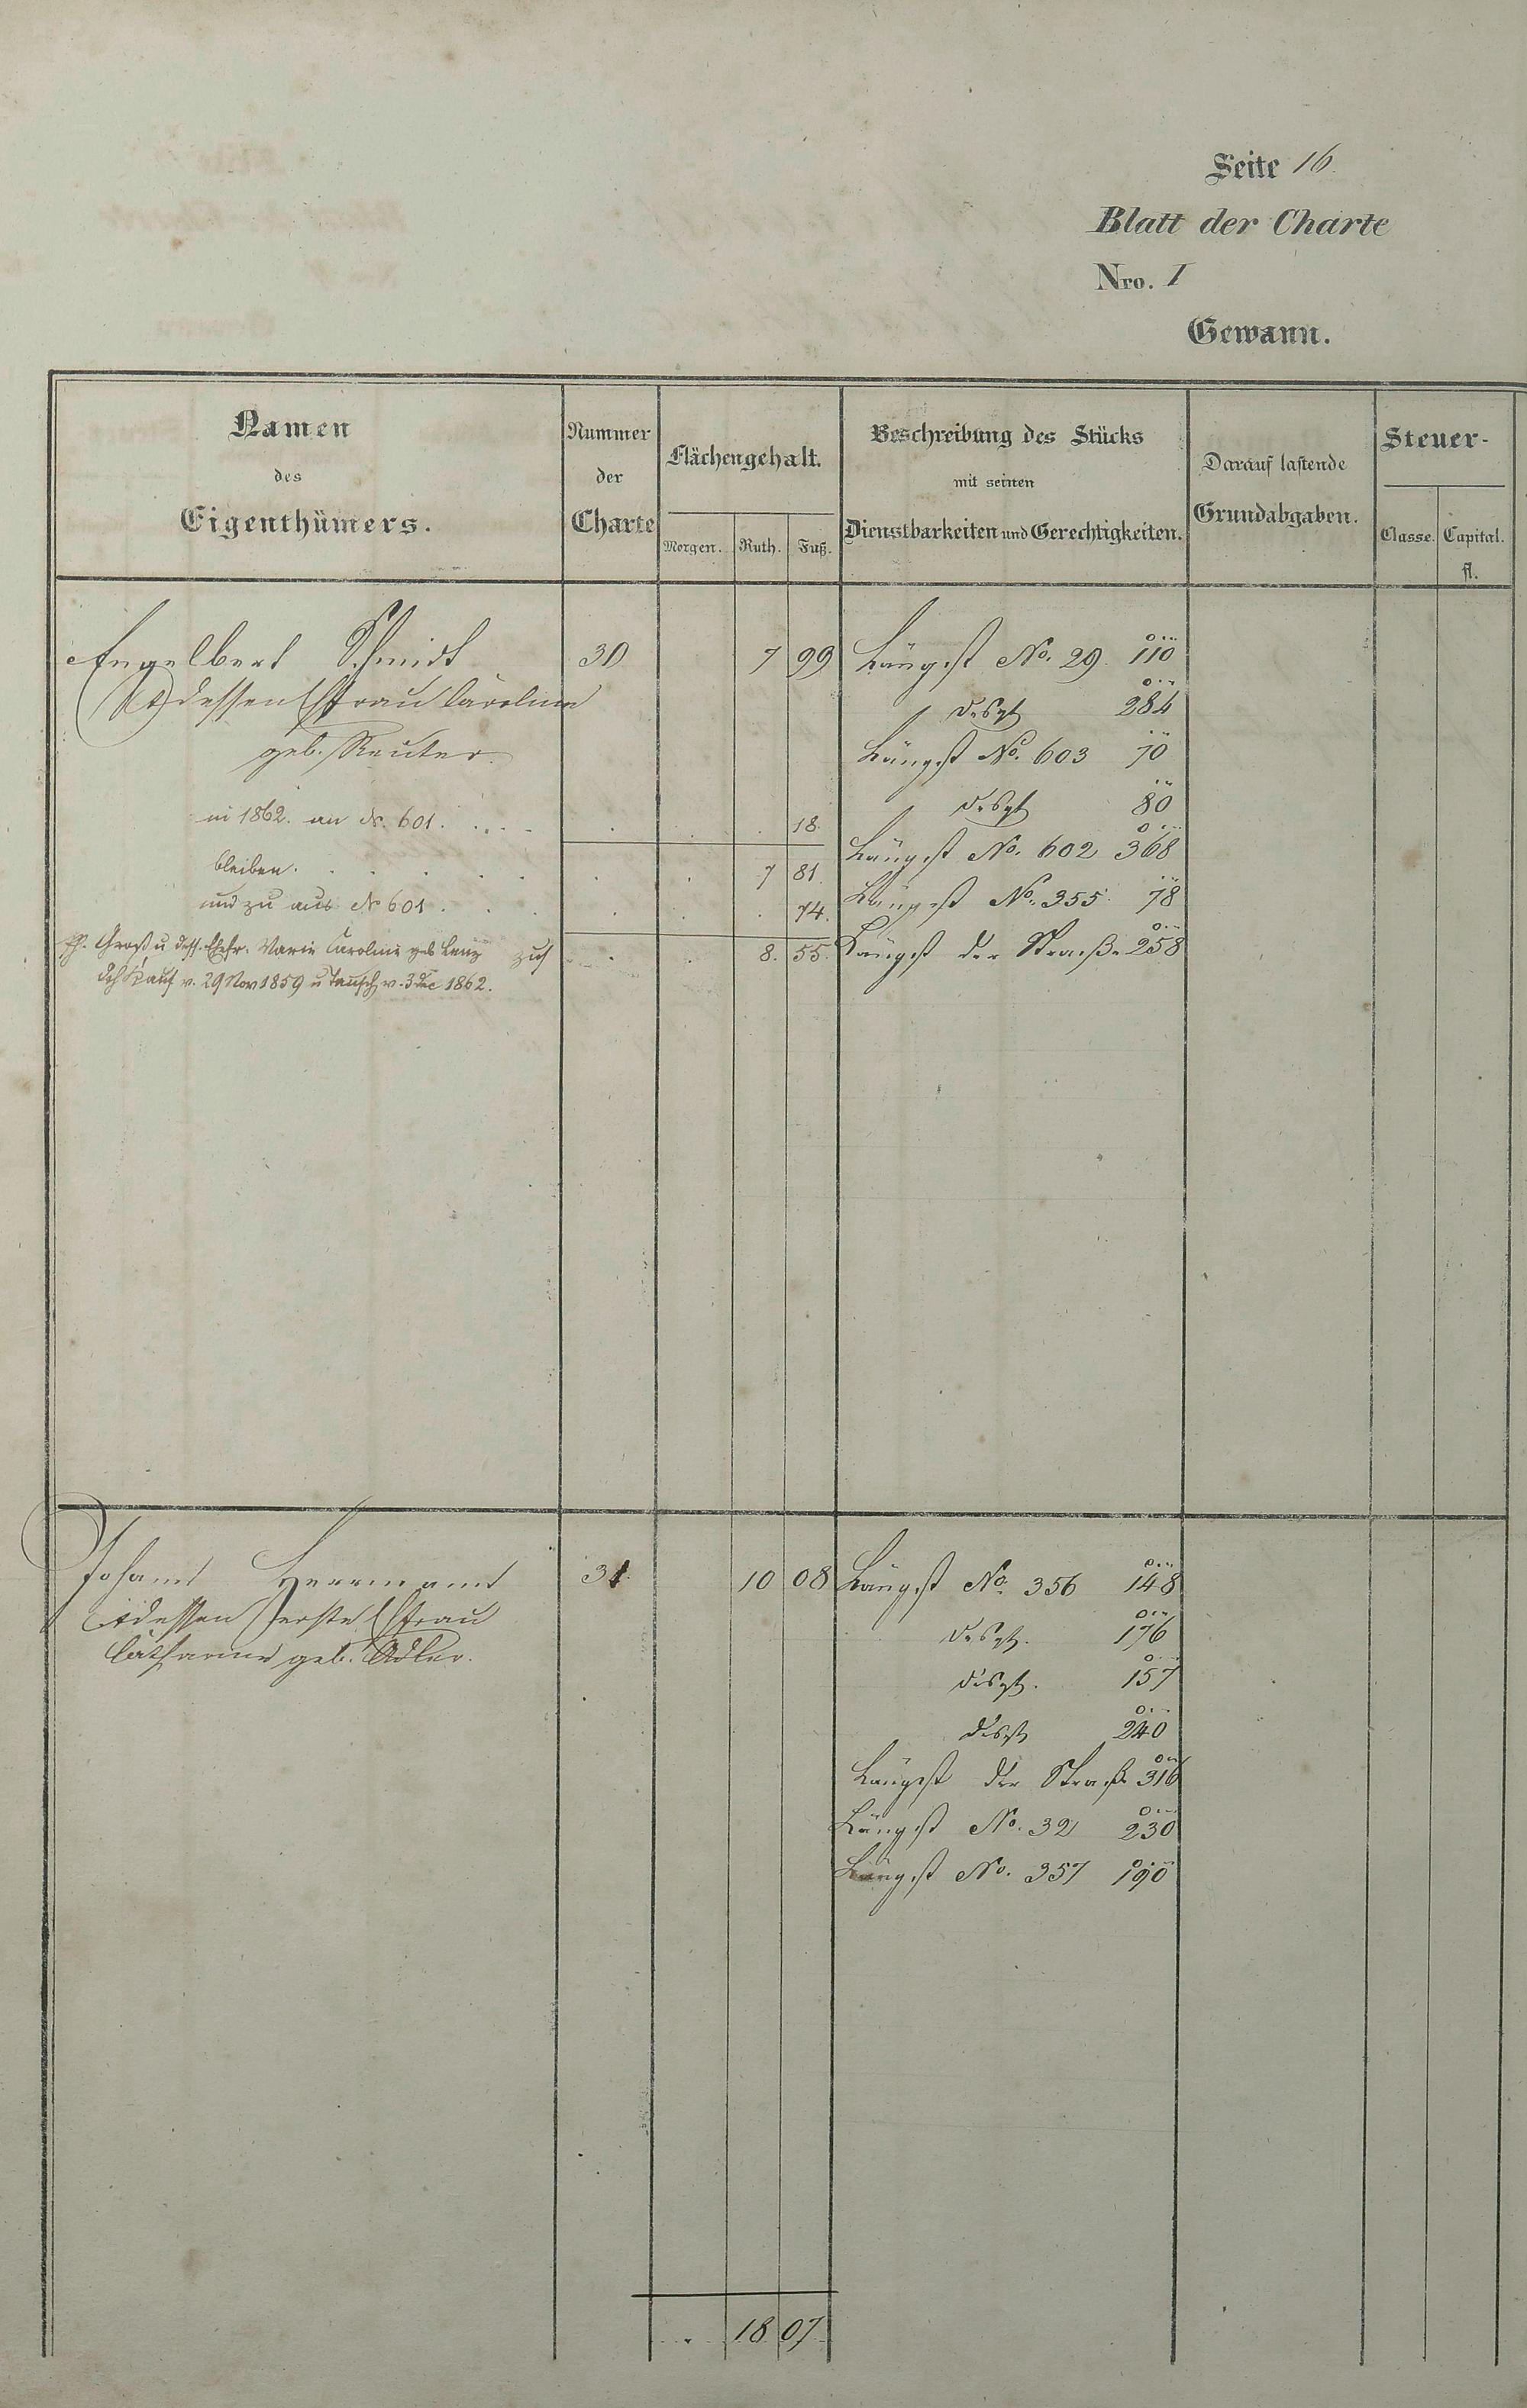 Seite 16.
Blatt der Charte
Nro. I
Gewann.
Namen des Eigenthümers.
Nummer der Charte
Flächengehalt.
Morgen. Ruth. Fuß.
Beschreibung des Stücks mit seinen Dienstbarkeiten und Gerechtigkeiten.
Darauf lastende Grundabgaben.
Steuer-
Classe. Capital. fl.
Engelbert Schmidt 30 7 99 Längst No. 29. 110
& dessen Ehfrau Caroline desgl 284
geb. Reuter. Längst No. 603 70
desgl 80
in 1862. an No. 601. 18.
Längst No. 602 368
bleiben. 7 81.
und zu aus No 601. 74. Längst No. 355. 78
Ph. Groß u dess. Ehefr. Marie Caroline geb Lenz zus 8. 55. Längst der Straße 258
dch Kauf v. 29 Nov 1859 u Tausch v. 3 Dec 1862.
Johann Herrmann 31. 10 08 Längst No. 356 148
& dessen erste Ehfrau desgl. 176
Catharine geb. Adler. desgl. 157
desgl 240
Längst der Straße 316
Längst No. 32 230
Längst No. 357 190
18 07